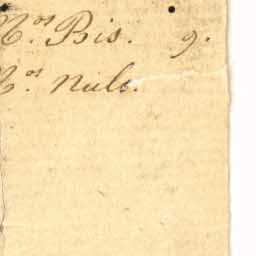 N.os Bis. 9.
N.os Nule.